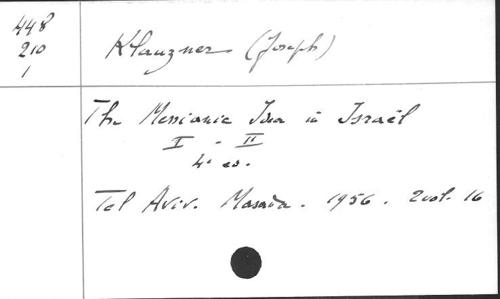 448
210
1
Klauzner (Joseph)
The Messianic Idea in Israël
I - II
4e ed.
Tel Aviv. Masada. 1956. 2 vol. 16